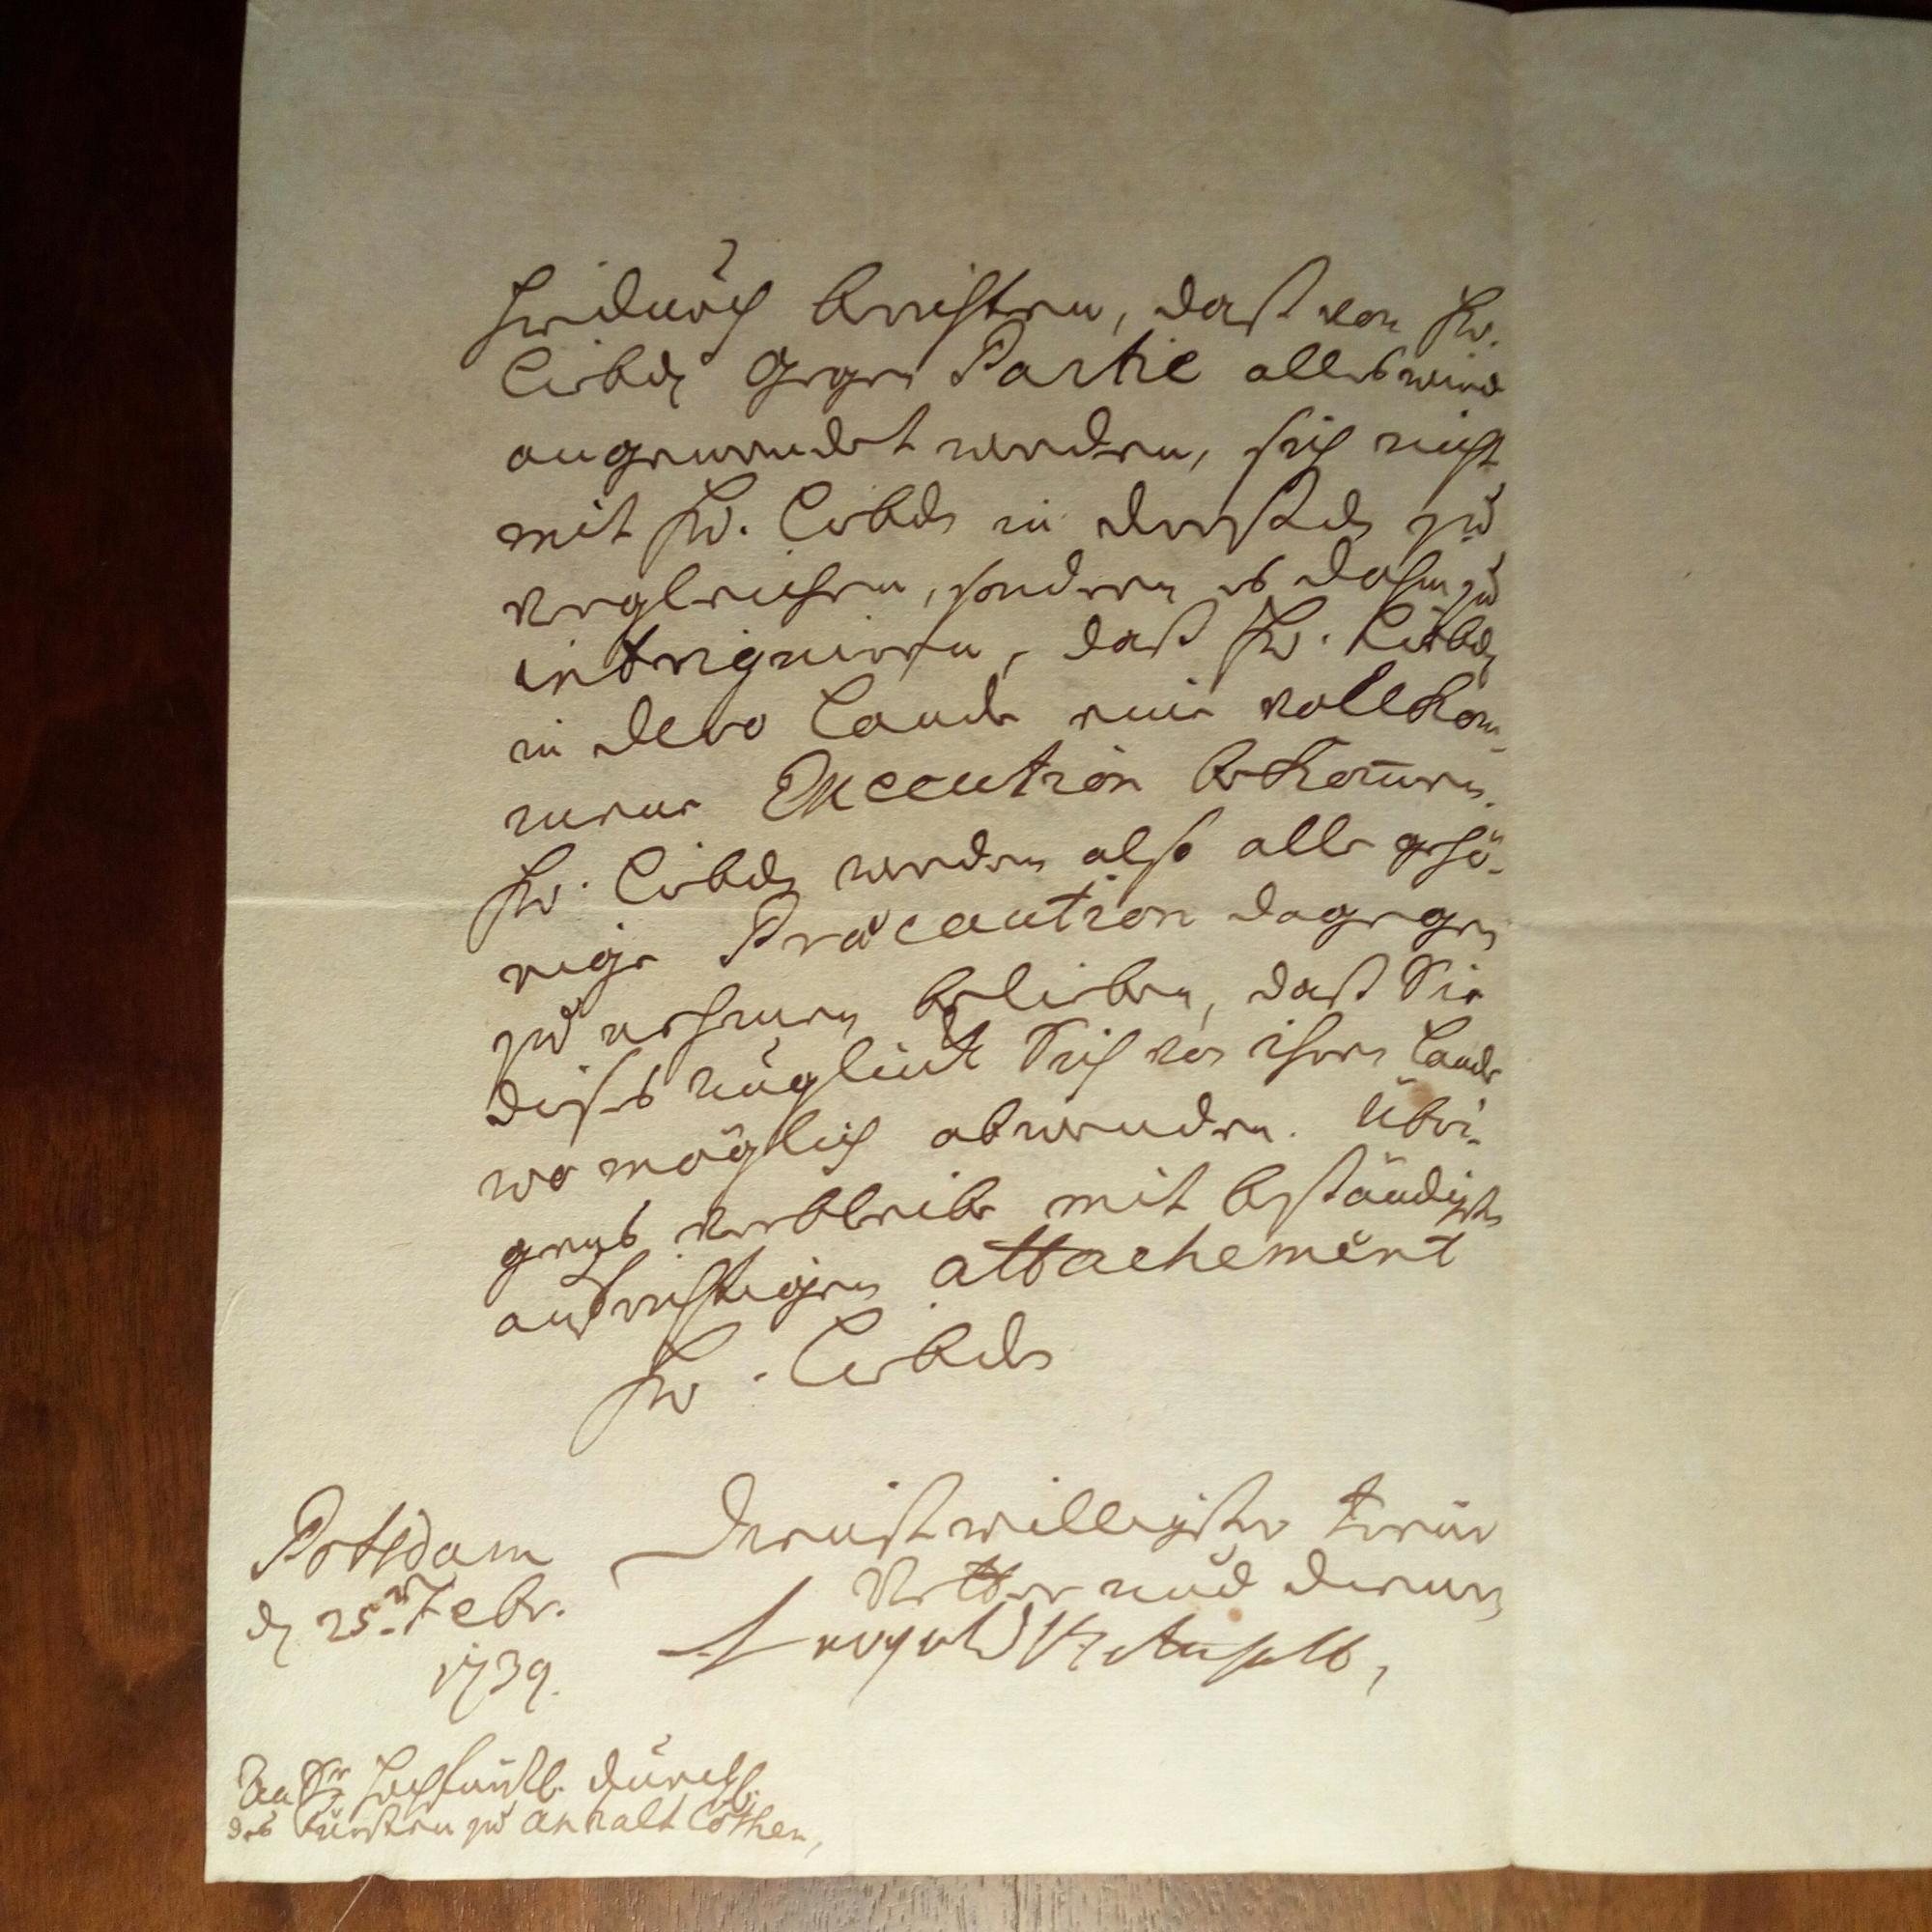 hiedurch berichten, daß von Ew.
Liebd. Gegen Partie alles wird
angewendet werden, sich nicht
mit Ew. Liebden in der zu
vergleichen, sondern es dahin zu
intriguiren, daß Ew. Liebd.
in Dero Lande eine vollkom-
mene Execution bekomen.
Ew. Liebden werden also alle gehö-
rige Präcaution dagegen
zu nehmen belieben, daß Sie
dieses Unglück Sich von ihren Lande
wo möglich abwenden. Übri-
gens verbleibe mit beständigste
aufrichtigen attachement
Ew. Liebden
Dienstwilligster treuer
Vetter und Diener
Leopold F z Anhalt,
Potsdam
d. 25.ten Febr.
1739.
An Sr. Hochfürstl. Durchl.
des Fürsten zu Anhalt Cöthen,